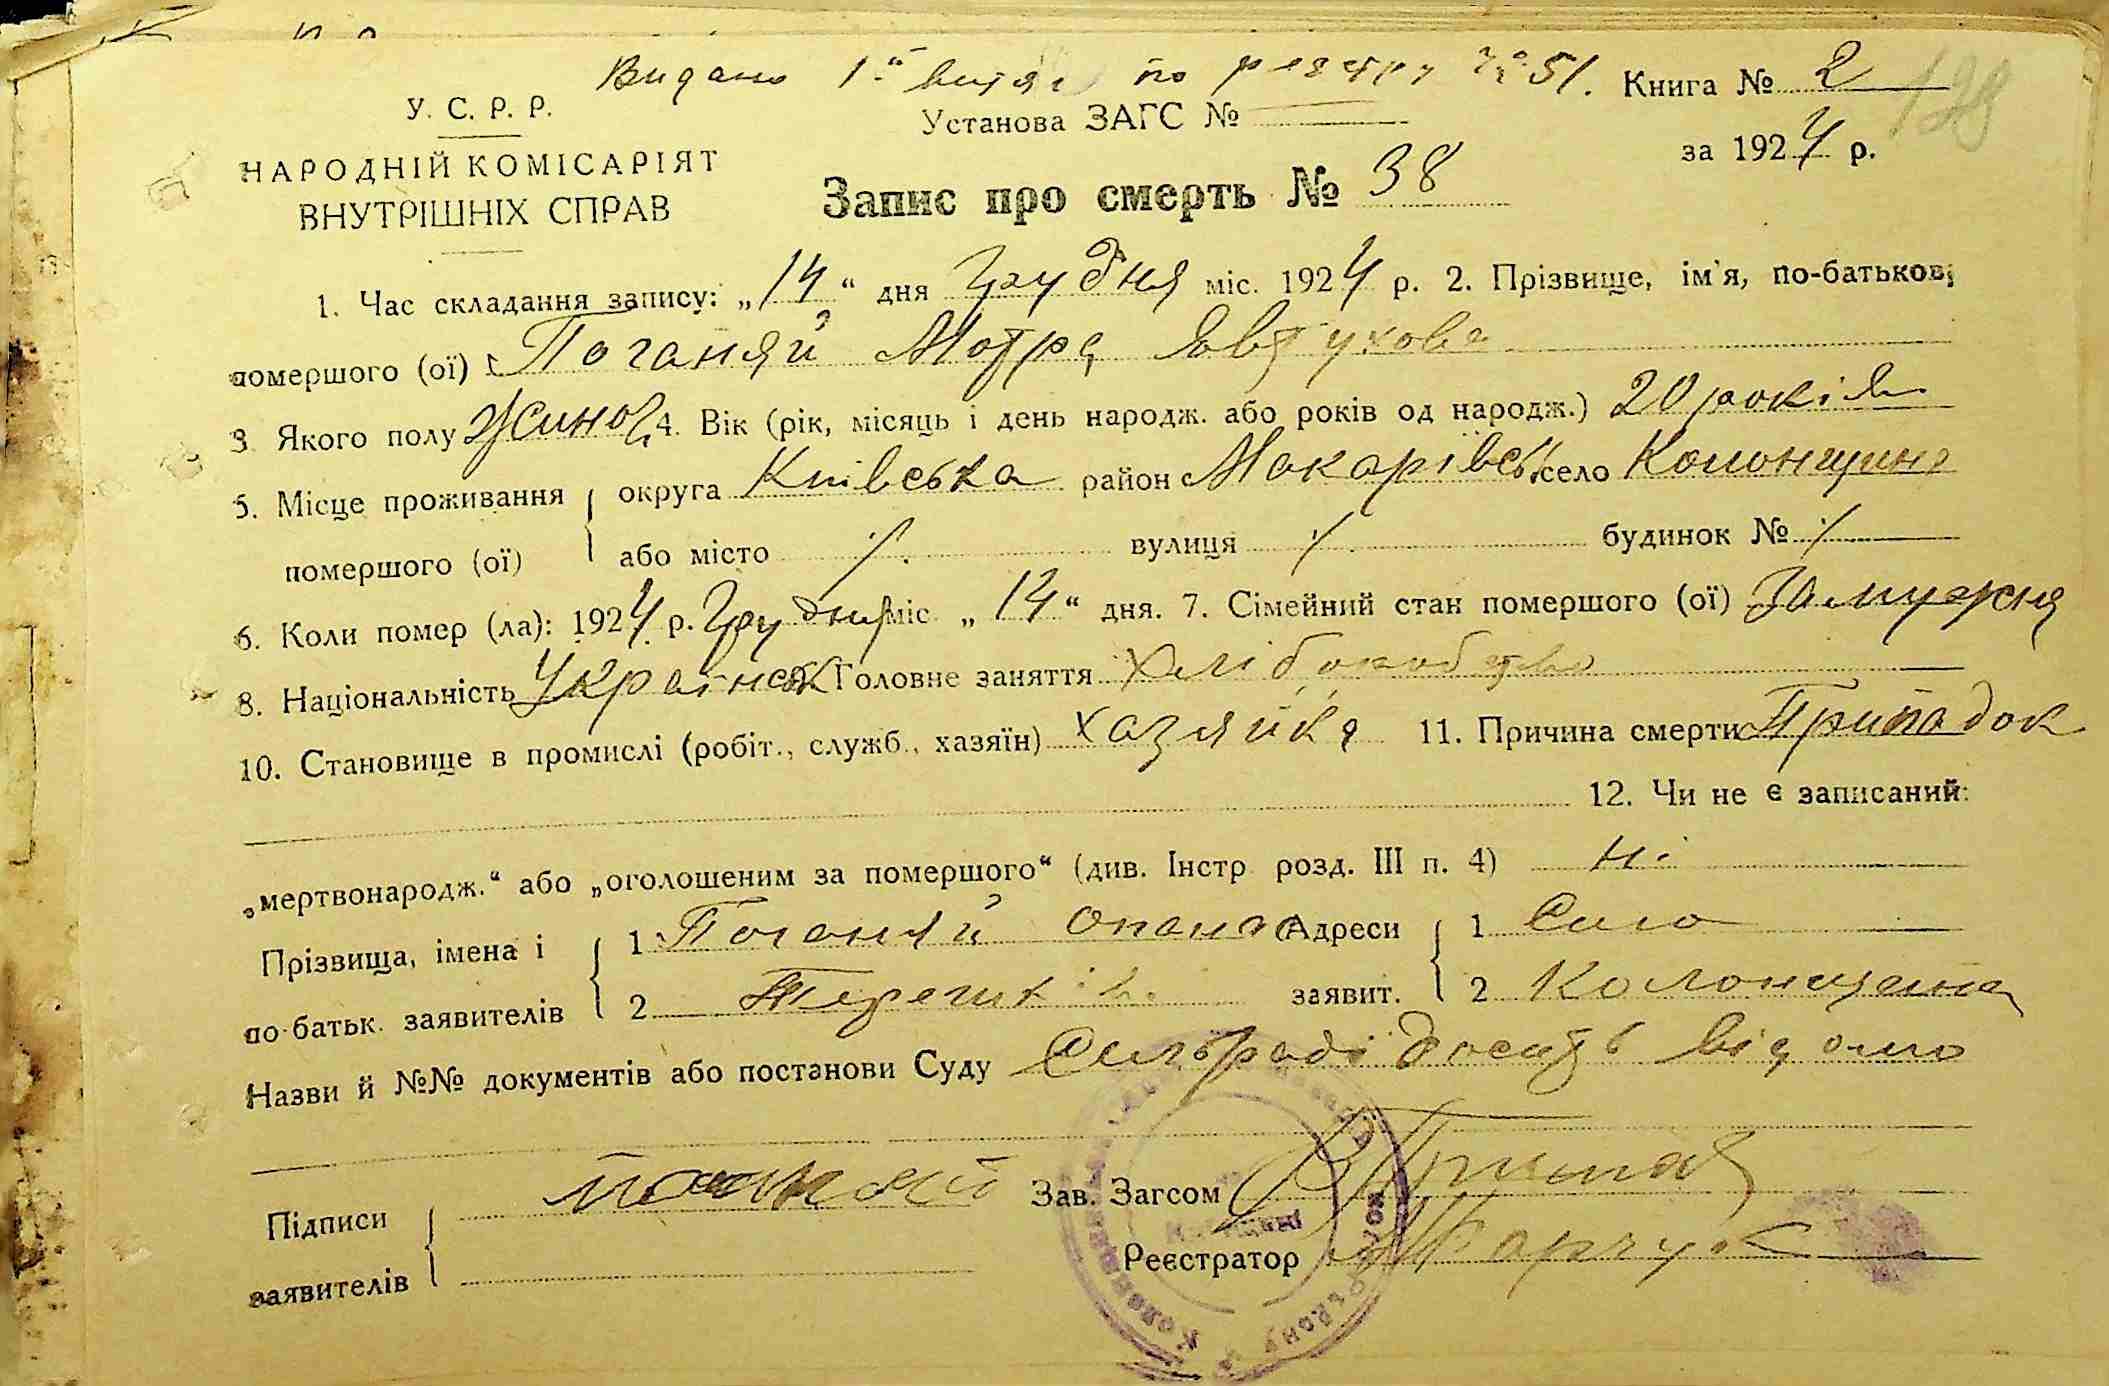 Видано 1й витяг по реєстру № 51. Книга № 2 128
У. С. Р. Р. Установа ЗАГС №
за 1924 р.
НАРОДНІЙ КОМІСАРІЯТ
ВНУТРІШНІХ СПРАВ
Запис про смерть № 38
1. Час складання запису: „14“ дня Грудня міс. 1924 р. 2. Прізвище, ім'я, по-батькові
помершого (ої) Поганяй Мотря Явтухова
3. Якого полу Жиноч. 4. Вік (рік, місяць і день народж. або років од народж.) 20 років
5. Місце проживання округа Київська район Макарівськ. село Колонщина
помершого (ої) або місто ·/. вулиця ·/. будинок № ·/.
6. Коли помер (ла): 1924 р. Грудня міс. „14“ дня. 7. Сімейний стан помершого (ої) Замужня
8. Національність Українськ Головне заняття Хліборобство
10. Становище в промислі (робіт., служб., хазяїн) Хазяйка 11. Причина смерти Припадок
12. Чи не є записаний:
„мертвонародж.“ або „оголошеним за помершого“ (див. Інстр розд. III п. 4) Ні
Прізвища, імена і 1 Поганяй Опанас Адреси 1 Село
по-батьк. заявителів 2 Терешків. заявит. 2 Колонщина
Назви й №№ документів або постанови Суду Сильраді досить відомо
Підписи Поганяй Зав. Загсом
заявителів Реєстратор